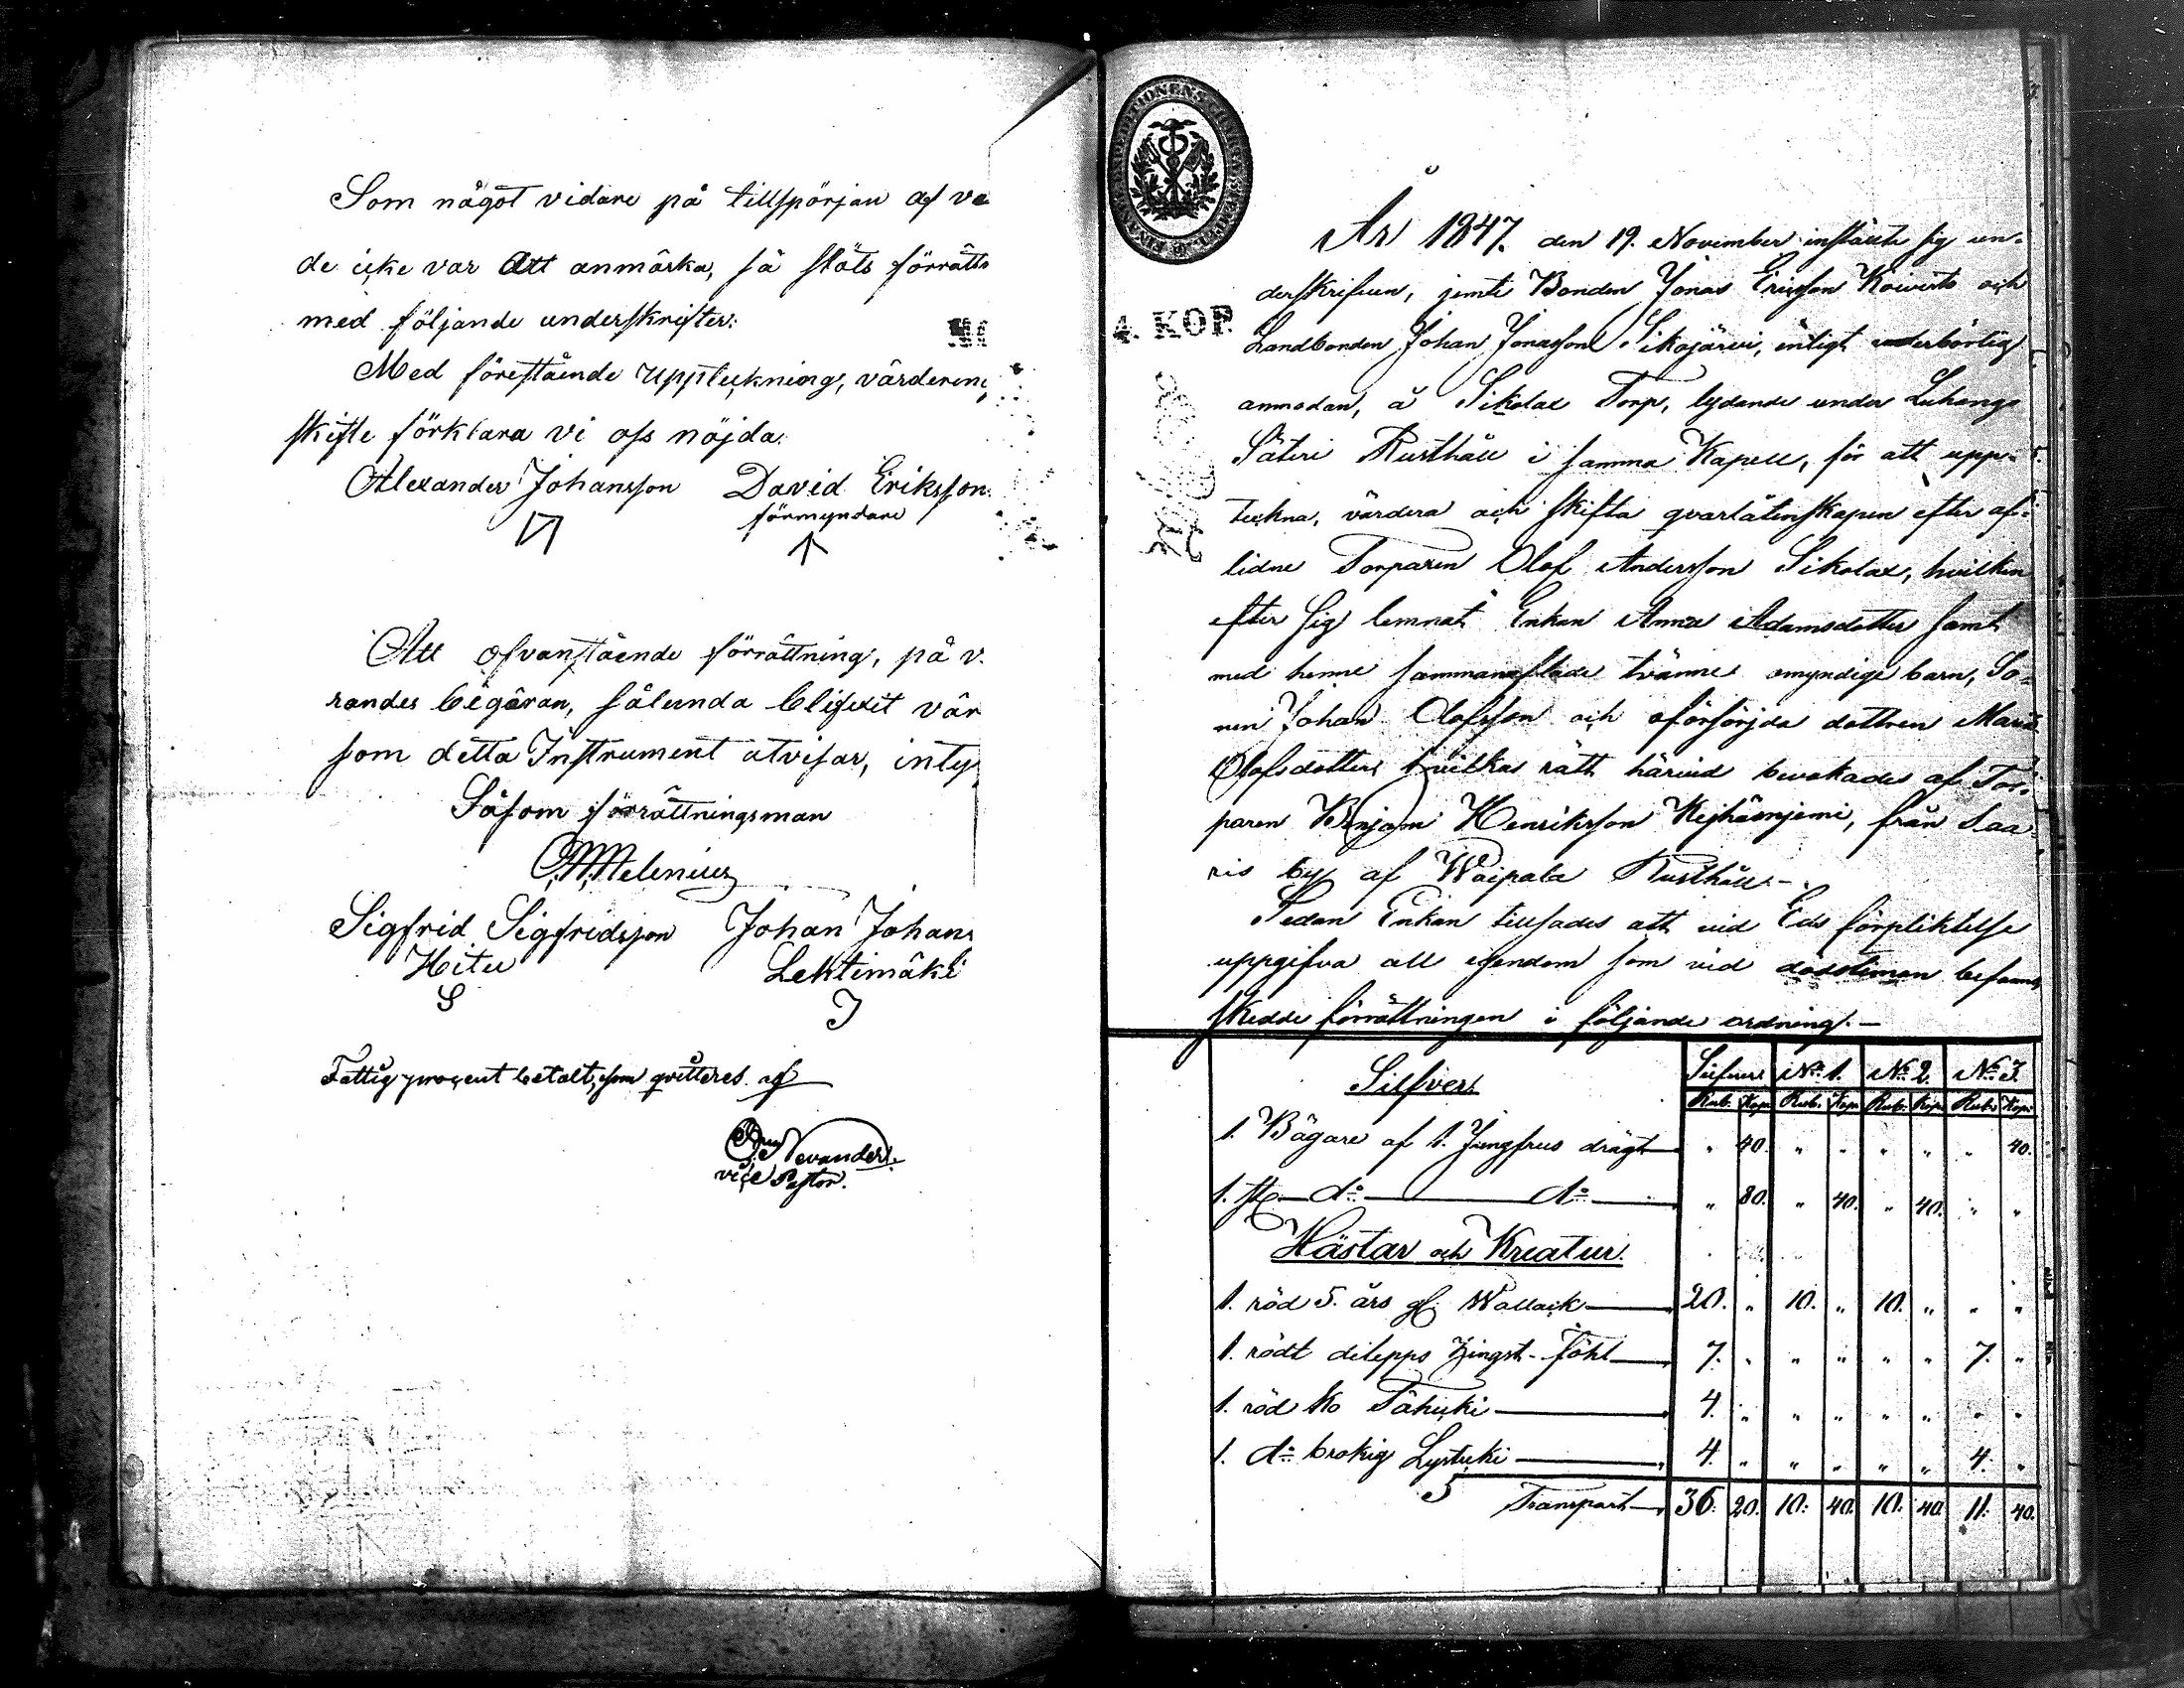 Som något vidare på tillspörjan af va
de icke var att anmärka, så slöts förrätts
med följande underskrifter:
Med förestående uppteckning, värderin
skifte förklara vi oss nöjda.
Alexander Johansson David Eriksson
förmyndare
Att ofvanstående förrättning, på v.
randes begäran, sålunda blifvit vär
som detta Instrument utvisar, inty
Såsom förrättningsman
Melenius
Sigfrid Sigfridsson Johan Johans
Hitu Lektimäki
S J
Fattig procent betalt, som qvitteres af
Nevander
vice Pastor.
4. KOP.
År 1847. den 19. November inställte sig un-
derskrifven, jemte Bonden Jonas Ericsson Koivisto och
Landbonden Johan Jonasson Sikajärvi, enligt vederbörlig
anmodan, å Sikolax Torp, lydande under Luhanga
Säteri Rusthåll i samma Kapell, för att upp-
teckna, värdera och skifta qvarlåtenskapen efter af-
lidne Torparen Olof Andersson Sikolax, hvilken
efter sig lemnat Enkan Anna Adamsdotter samt
med henne sammanaflade tvänne omyndige barn, So-
nen Johan Olofsson och oförsörjda dottren Maria
Olofsdotter hvilkas rätt härvid bevakades af Tor-
paren Benjam Henriksson Kejhäsnjemi, från Saa-
ris by af Waipala Rusthåll.-
Sedan Enkan tillsades att vid Eds förpliktelse
uppgifva all egendom som vid dödstiman befanns,
skedde förrättningen i följande ordning.-
Silfver Silfver No 1. No 2. No 3.
Rub. Kop. Rub. Kop. Rub. Kop. Rub. Kop.
1. Bägare af 1. Jungfrus drägt " 40. " " " " " 40.
1. st. do do " 80. " 40. " 40. " "
Hästar och Kreatur.
1. röd 5. års gl. Wallack 20. " 10. " 10. " " "
1. rödt Hingst-föhl 7. " " " " " 7. "
1. röd ko Tähicki 4. " " " " " " "
1. do brokig Lysticki 4. " " " " " 4. "
5 Transport 36. 20. 10. 40. 10. 40. 11. 40.